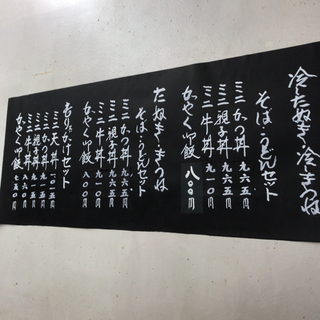 冷たぬき・冷きつね
そば・うどんセット
ミニかつ丼 九六五円
ミニ親子丼 九六五円
ミニ牛丼 九一〇円
かやく御飯 八〇〇円
たぬき・きつね
そば・うどんセット
ミニかつ丼 九六五円
ミニ親子丼 九六五円
ミニ牛丼 九一〇円
かやく御飯 八〇〇円
もり・かけセット
ミニ天丼 一〇一五円
ミニかつ丼 九一五円
ミニ親子丼 九一五円
ミニ牛丼 八六〇円
かやく御飯 七五〇円